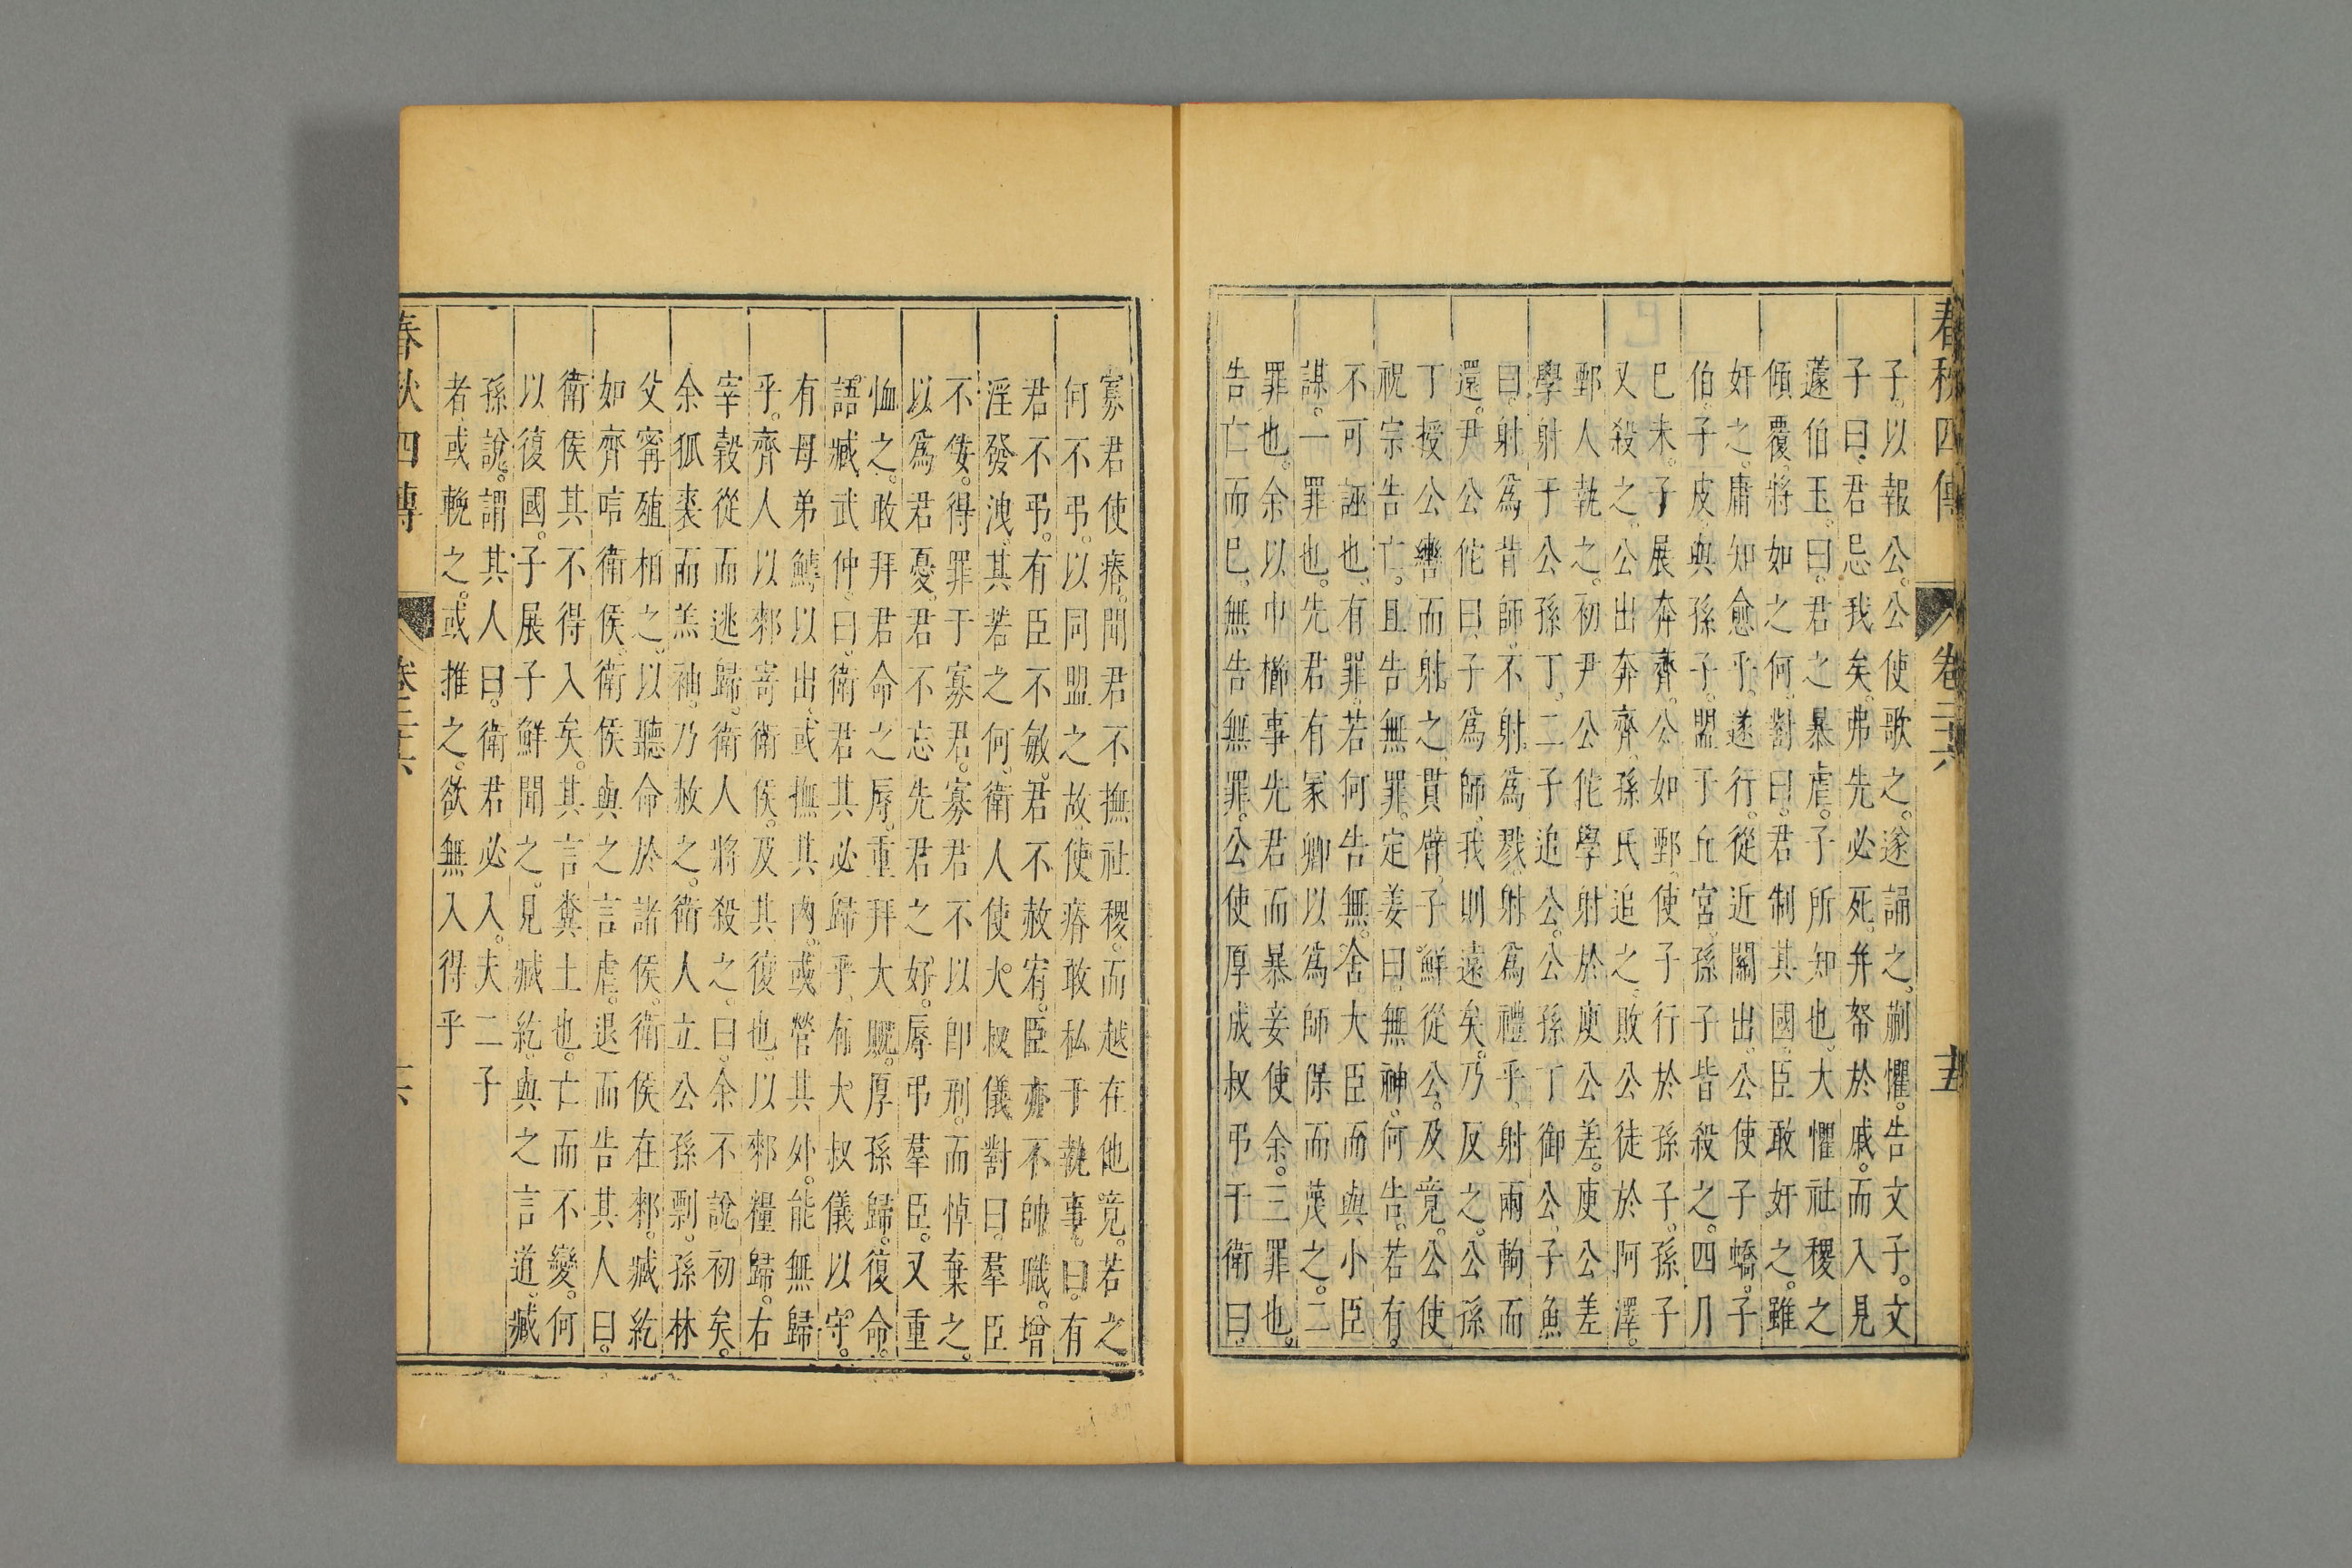 春秋四傳 卷二十六 十五
子以報公。公使歌之。遂誦之。蒯懼。告文子。文
子曰。君忌我矣。弗先必死。并帑於戚。而入見
蘧伯玉。曰。君之暴虐。子所知也。大懼社稷之
傾覆。將如之何。對曰。君制其國。臣敢奸之。雖
奸之。庸知愈乎。遂行。從近關出。公使子蟜。子
伯。子皮與孫子盟于丘宮。孫子皆殺之。四月
己未。子展奔齊。公如鄄。使子行於孫子。孫子
又殺之。公出奔齊。孫氏追之。敗公徒於阿澤。
鄄人執之。初尹公佗學射於庾公差。庾公差
學射于公孫丁。二子追公。公孫丁御公。子魚
曰。射爲背師。不射爲戮。射爲禮乎。射兩軥而
還。尹公佗曰。子爲師。我則遠矣。乃反之。公孫
丁授公轡而射之。貫臂。子鮮從公。及竟。公使
祝宗告亡。且告無罪。定姜曰。無神。何告。若有。
不可誣也。有罪。若何告無。舍大臣而與小臣
謀。一罪也。先君有冢卿以爲師保而蔑之。二
罪也。余以巾櫛事先君而暴妾使余。三罪也。
告亡而已。無告無罪。公使厚成叔弔于衛。曰。
寡君使瘠。聞君不撫社稷。而越在他竟。若之
何不弔。以同盟之故。使瘠敢私于執事。曰。有
君不弔。有臣不敏。君不赦宥。臣亦不帥職。增
淫發洩。其若之何。衛人使大叔儀對曰。羣臣
不佞。得罪于寡君。寡君不以即刑。而悼棄之。
以爲君憂。君不忘先君之好。辱弔羣臣。又重
恤之。敢拜君命之辱。重拜大貺。厚孫歸。復命。
語臧武仲。曰。衛君其必歸乎。有大叔儀以守。
有母弟鱄以出。或撫其內。或營其外。能無歸
乎。齊人以郲寄衛侯。及其復也。以郲糧歸。右
宰穀從而逃歸。衛人將殺之。曰。余不說初矣。
余狐裘而羔袖。乃赦之。衛人立公孫剽。孫林
父甯殖相之。以聽命於諸侯。衛侯在郲。臧紇
如齊唁衛侯。衛侯與之言虐。退而告其人曰。
衛侯其不得入矣。其言糞土也。亡而不變。何
以復國。子展子鮮聞之。見臧紇。與之言道。臧
孫說。謂其人曰。衛君必入。夫二子
者。或輓之。或推之。欲無入得乎
春秋四傳 卷二十六 十六